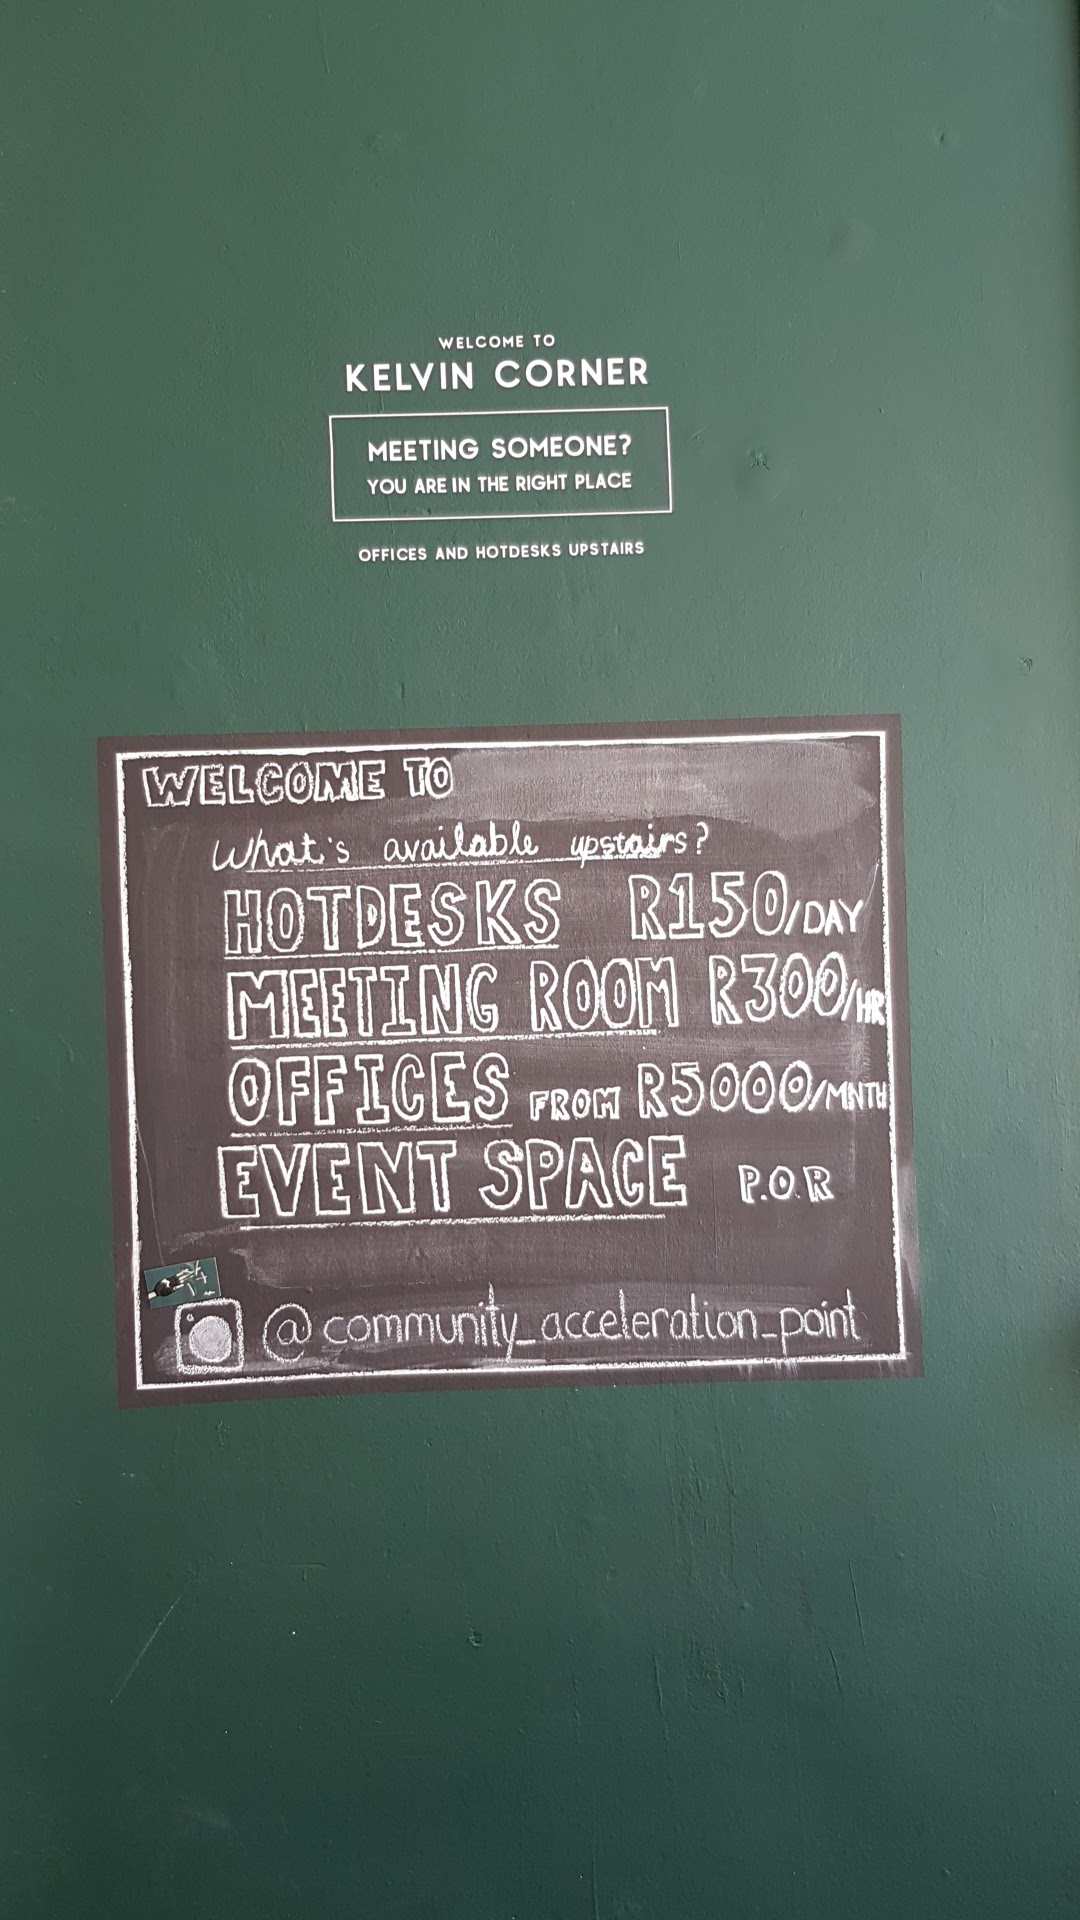 WELCOME TO
KELVIN CORNER
MEETING SOMEONE?
YOU ARE IN THE RIGHT PLACE
OFFICES AND HOTDESKS UPSTAIRS
WELCOME TO
What's available upstairs?
HOTDESKS R150/DAY
MEETING ROOM R300/HR
OFFICES FROM R5000/MNTH
EVENT SPACE P.O.R
@community_acceleration_point